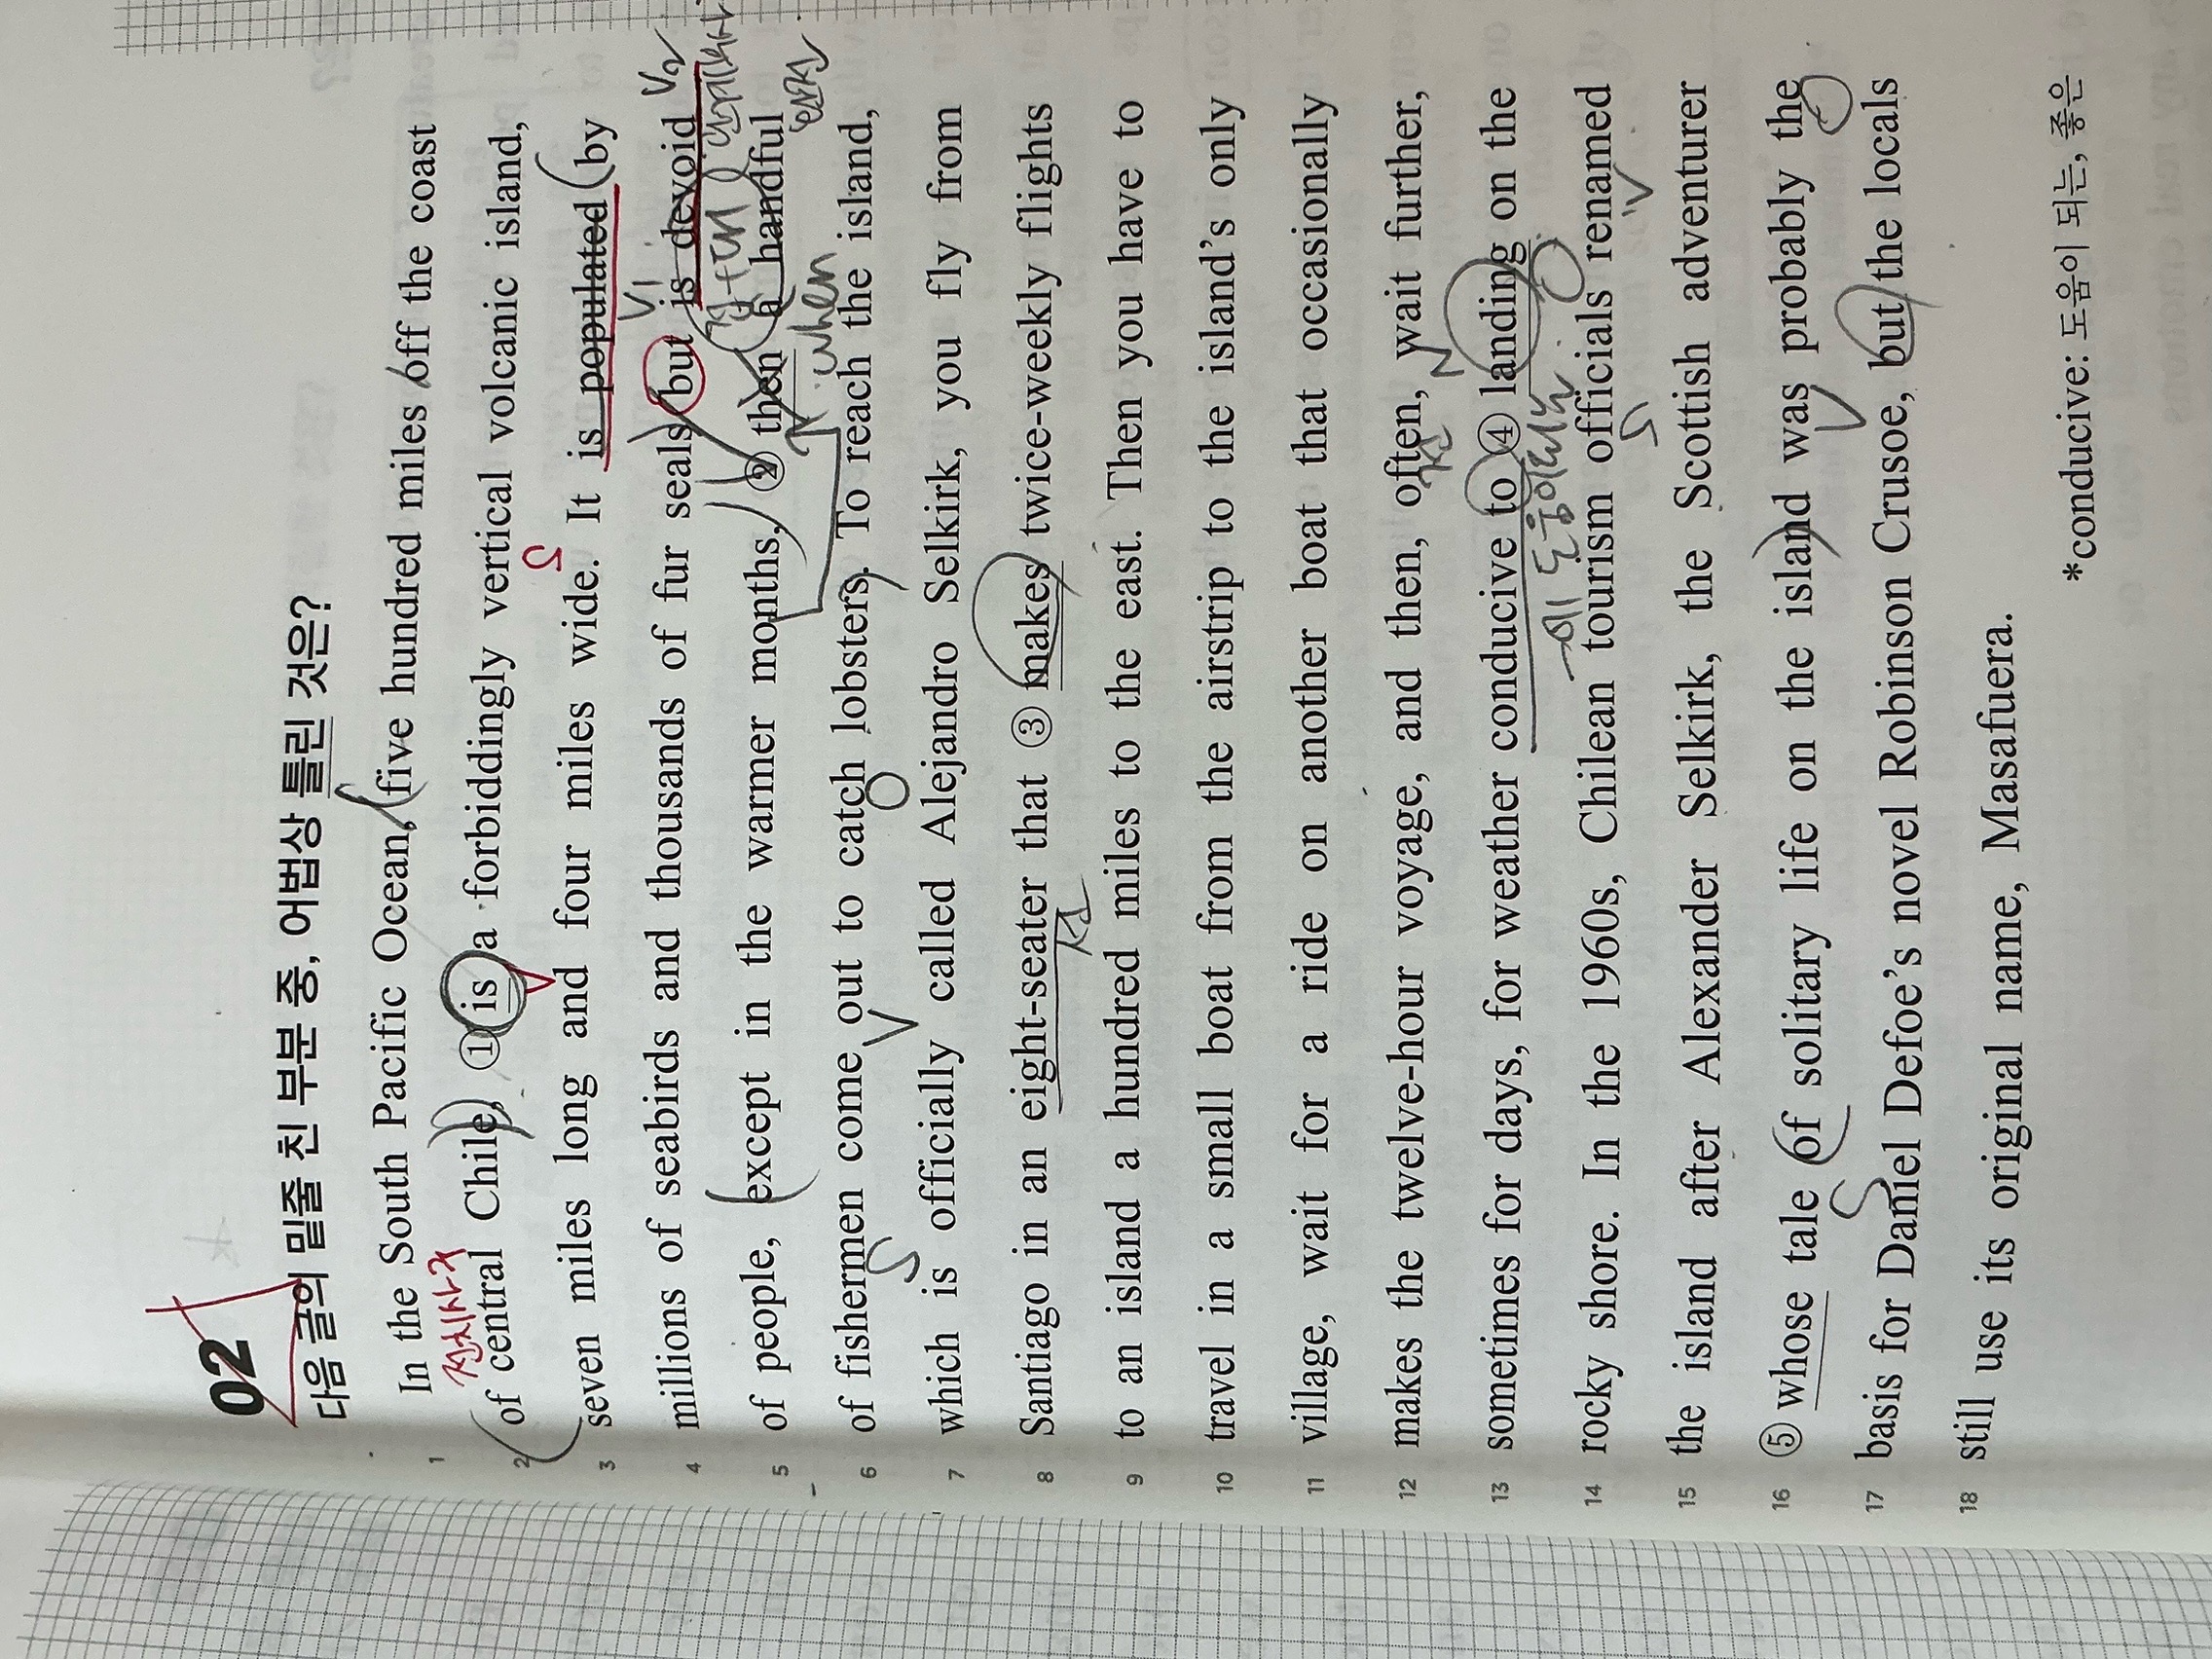 02
다음 글의 밑줄 친 부분 중, 어법상 틀린 것은?
1 In the South Pacific Ocean, five hundred miles off the coast
전치사구
2 of central Chile, ① is a forbiddingly vertical volcanic island,
V S
3 seven miles long and four miles wide. It is populated by
V1 V2
4 millions of seabirds and thousands of fur seals but is devoid
접+대
5 of people, except in the warmer months, ② then a handful
when 완전
6 of fishermen come out to catch lobsters. To reach the island,
S V O
7 which is officially called Alejandro Selkirk, you fly from
8 Santiago in an eight-seater that ③ makes twice-weekly flights
선
9 to an island a hundred miles to the east. Then you have to
10 travel in a small boat from the airstrip to the island's only
11 village, wait for a ride on another boat that occasionally
12 makes the twelve-hour voyage, and then, often, wait further,
전 N
13 sometimes for days, for weather conducive to ④ landing on the
에 도움이되는
14 rocky shore. In the 1960s, Chilean tourism officials renamed
S V
15 the island after Alexander Selkirk, the Scottish adventurer
16 ⑤ whose tale of solitary life on the island was probably the
S V C
17 basis for Daniel Defoe's novel Robinson Crusoe, but the locals
18 still use its original name, Masafuera.
*conducive: 도움이 되는, 좋은